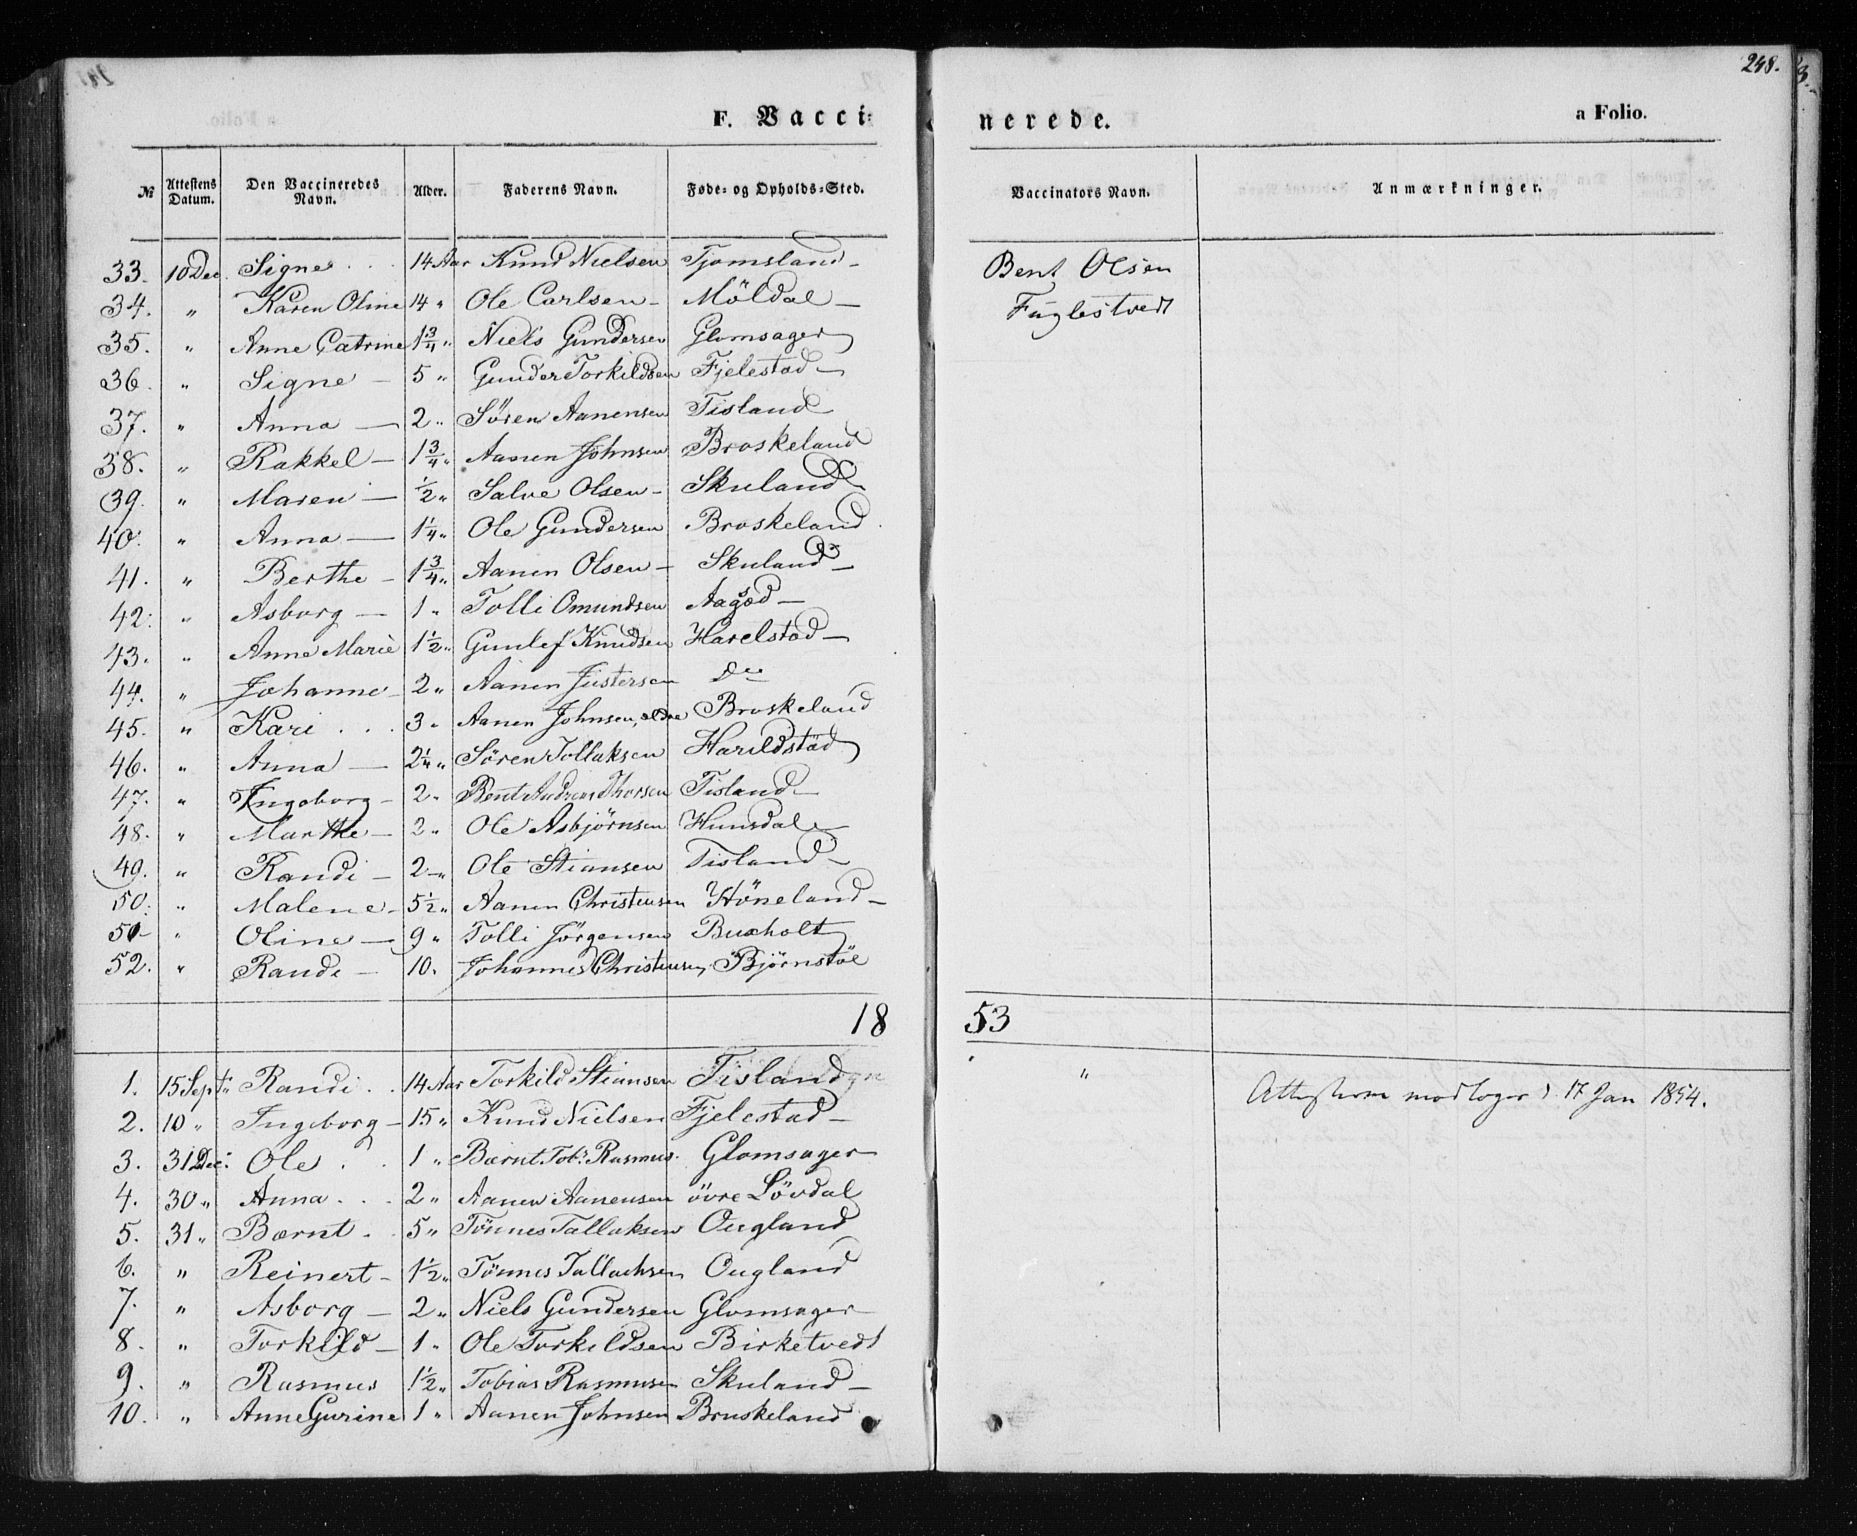 248.
F. Vacci=
nerede.
a Folio.
№ Attestens Datum. Den Vaccineredes Navn. Alder. Faderens Navn. Føde- og Opholds-Sted. Vaccinators Navn. Anmærkninger.
33. 10 Dec. Signe 14 Aar Knud Nielsen Tjomsland Bent Olsen
34. " Karen Oline 14 " Ole Carlsen Möldal Fuglestvedt
35. " Anne Catrine 1 3/4 " Niels Gundersen Glomsager
36. " Signe 5 " Gunder Torkildsen Fjelestad
37. " Anna 2 " Sören Aanensen Tisland
38. " Rakkel 1 3/4 " Aanen Johnsen Broskeland
39. " Maren 1/2 " Salve Olsen Skuland
40. " Anna 1 1/4 " Ole Gundersen Broskeland
41. " Berthe 1 3/4 " Aanen Olsen Skuland
42. " Asborg 1 " Tolli Omundsen
43. " Anne Marie 1 1/2 " Gunlef Knudsen Harelstad
44. " Johanne 2 " Aanen Justersen Do
45. " Kari 3 " Aanen Johnsen, ældre Broskeland
46. " Anna 2 1/4 " Sören Tollaksen Harildstad
47. " Ingeborg 2 " Bent Andreas Thorsen Tisland
48. " Marthe 2 " Ole Asbjørnsen Hunsdal
49. " Randi 2 " Ole Stiansen Tisland
50. " Malene 5 1/2 " Aanen Christensen Höneland
51 " Oline 9 " Tolli Jörgensen Buxholt
52. " Randi 10 " Johannes Christensen Bjørnstöl
18 53
1. 15 Sept: Randi 14 Aar Torkild Stiansen Tisland " Attesterne modtoges d. 17 Jan 1854.
2. 10 " Ingeborg 15 " Knud Nielsen Fjelestad
3. 31 Dec: Ole 1 " Bærnt Tob: Rasmus. Glomsager
4. 30 " Anna 2 " Aanen Aanensen övre Lövdal
5. 31 " Bærnt 5 " Tönnes Tallaksen Ougland
6. " Reinert 1 1/2 " Tönnes Tallachsen Ougland
7. " Asborg 2 " Niels Gundersen Glomsager
8. " Torkild 1 " Ole Torkildsen Birketvedt
9. " Rasmus 1 1/2 " Tobias Rasmusen Skuland
10. " Anne Gurine 1 " Aanen Johnsen Bruskeland